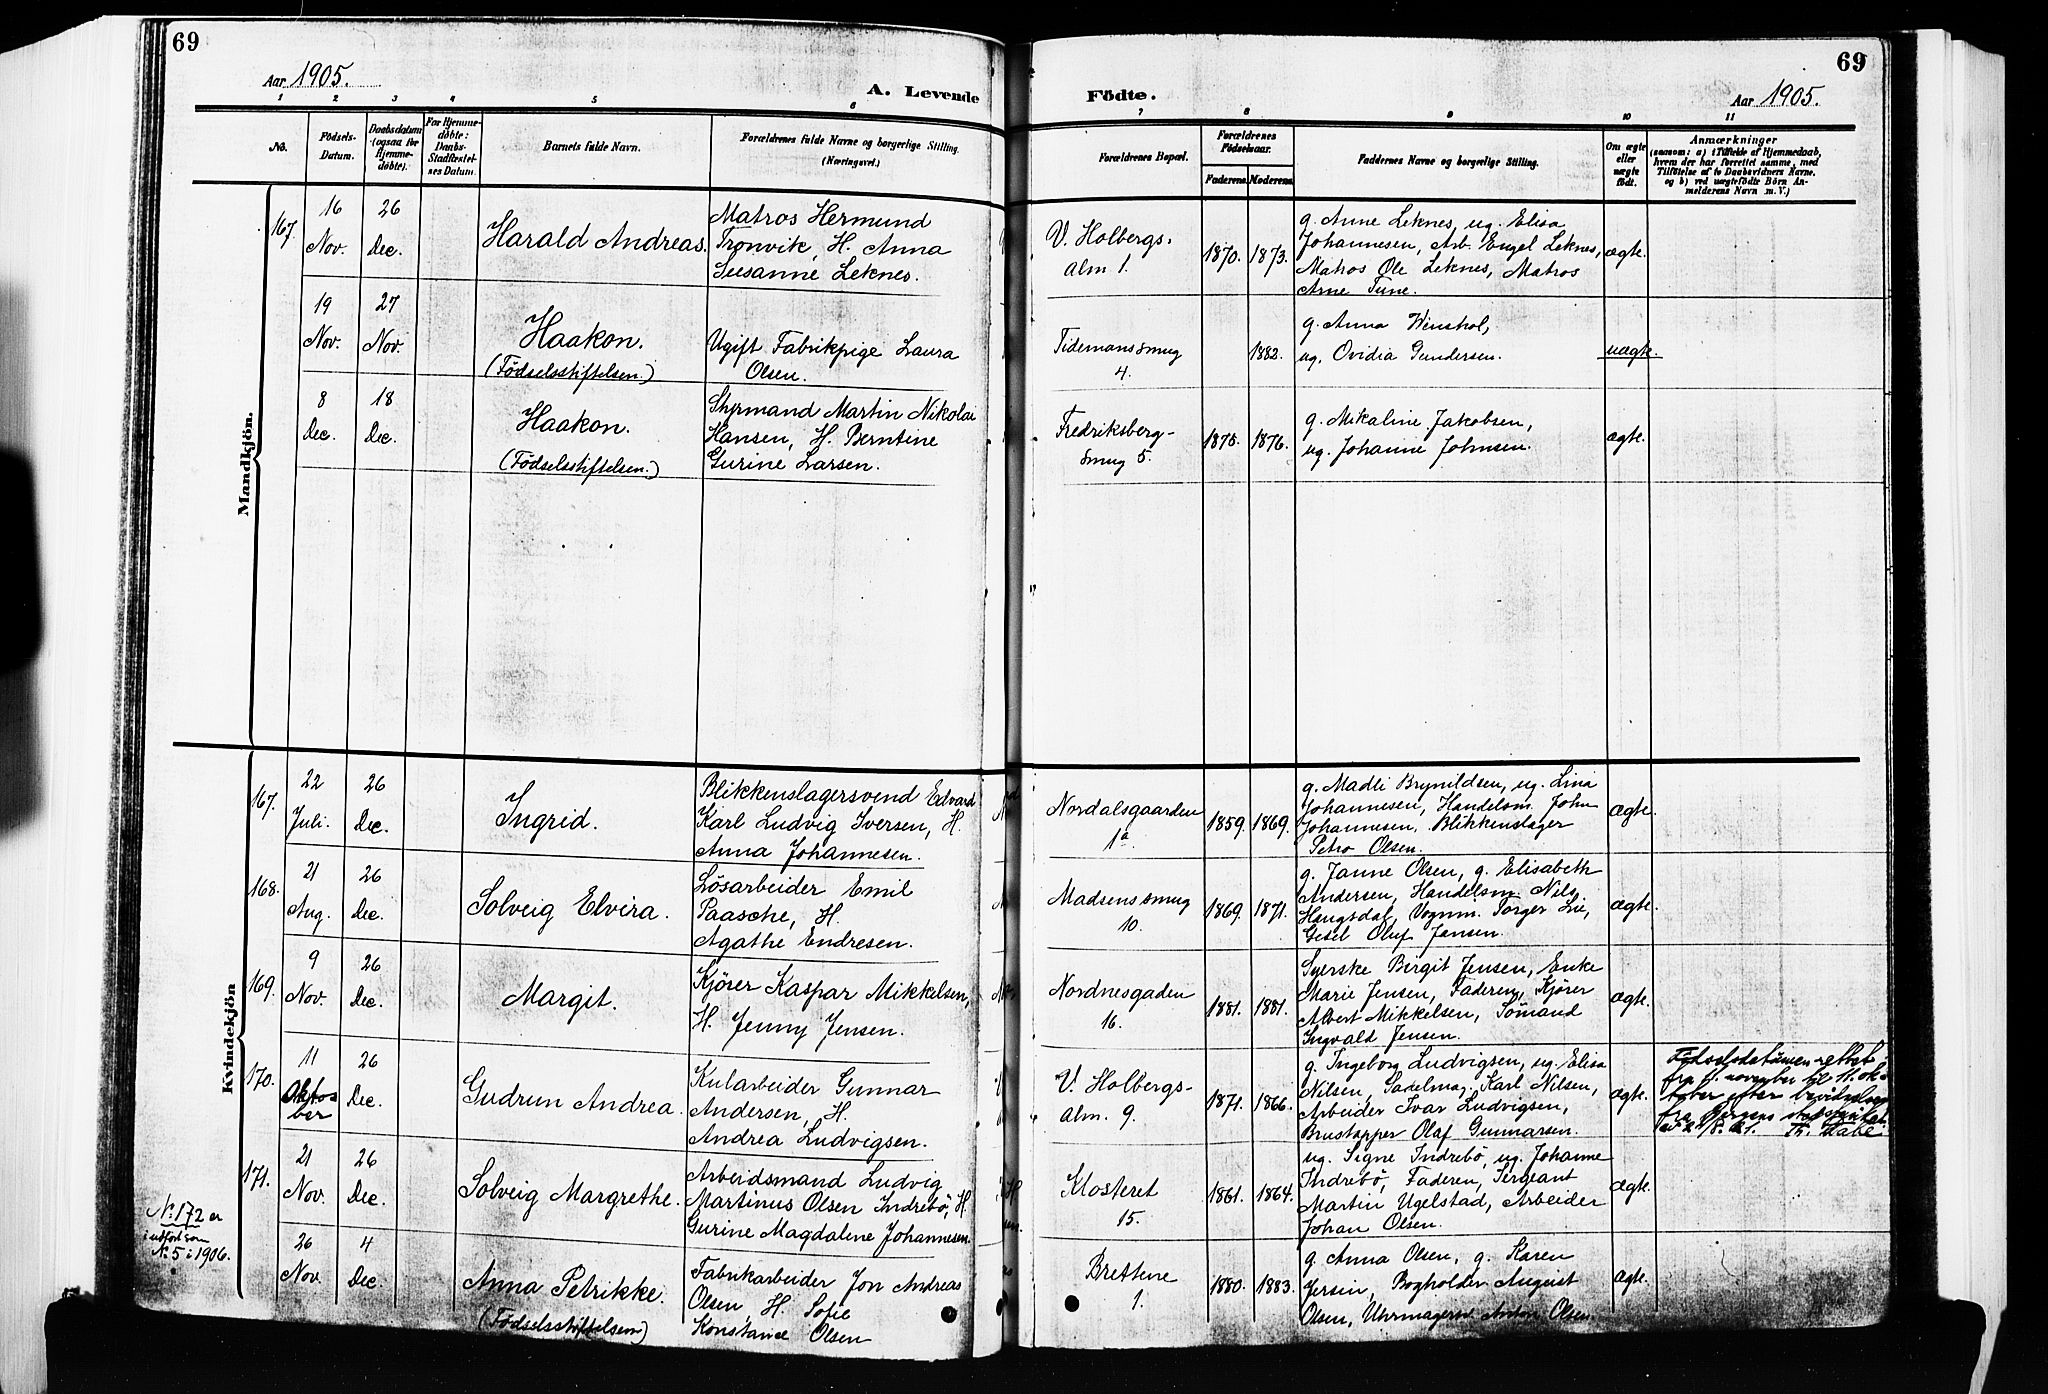 69
Aar 1905.
A. Levende
1 2 3 4 5 6
No.
Födsels-
Datum.
Daabsdatum
(ogsaa for
Hjemme-
döbte).
For Hjemme-
döbte:
Daabs-
Stadfæstel-
ses Datum.
Barnets fulde Navn.
Forældrenes fulde Navne og borgerlige Stilling.
(Næringsvei.)
Mandkjön.
167.
16
Nov.
26
Dec.
Harald Andreas.
Matros Hermund
Tronvik, H. Anna
Susanne Leknes.
19
Nov.
27
Nov.
Haakon.
(Födselsstiftelsen.)
Ugift Fabrikpige Laura
Olsen.
8
Dec.
18
Dec.
Haakon.
(Födselsstiftelsen.)
Styrmand Martin Nikolai
Hansen, H. Berntine
Gurine Larsen.
Kvindekjön
167.
22
Juli.
26
Dec.
Ingrid.
Blikkenslagersvend Edvard
Karl Ludvig Iversen, H.
Anna Johannesen.
168.
21
Aug.
26
Dec.
Solveig Elvira.
Lösarbeider Emil
Paasche, H.
Agathe Endresen.
169.
9
Nov.
26
Dec.
Margit.
Kjörer Kaspar Mikkelsen,
H. Jenny Jensen.
170.
11
Okto-
ber
26
Dec.
Gudrun Andrea.
Kularbeider Gunnar
Andersen, H.
Andrea Ludvigsen.
171.
21
Nov.
26
Dec.
Solveig Margrethe.
Arbeidsmand Ludvig
Martinus Olsen Indrebö, H.
Gurine Magdalene Johannesen.
No 172 er
indfört som
No 5 i 1906.
26
Nov.
4
Dec.
Anna Petrikke.
(Födselsstiftelsen)
Fabrikarbeider Jon Andreas
Olsen H. Sofie
Konstance Olsen
69
Födte.
Aar 1905.
7 8 9 10 11
Forældrenes Bopæl.
Forældrenes
Födselsaar.
Faderens. Moderens.
Faddernes Navne og borgerlige Stilling.
Om ægte
eller
uægte
födt.
Anmærkninger
(saasom: a) i Tilfælde af Hjemmedaab,
hvem der har forrettet samme, med
Tilföielse af to Daabsvidners Navne,
og b) ved uægtefödte Börn An-
melderens Navn m. V.)
V. Holbergs.
alm 1.
1870. 1873.
g. Anne Leknes, ug. Elisa
Johannesen, Arb. Engel Leknes,
Matros Ole Leknes, Matros
Arne Tune.
ægte.
Tidemanssmug
4.
1882.
g. Anna
ug. Ovidia Gundersen.
uægte.
Fredriksberg-
smug 5.
1875. 1876.
g. Mikaline Jakobsen,
ug. Johanne Johnsen.
ægte.
Nordalsgaarden
1a.
1859. 1869.
g. Madli Brynildsen, ug. Lina
Johannesen, Handelsm. John
Johannesen, Blikkenslager
Petro Olsen.
ægte.
Madsenssmug
10.
1869. 1871.
g. Janne Olsen, g. Elisabeth
Andersen, Handelsm. Nils
Haugsdal, Vognm. Torger Lie,
Gesel Oluf Jansen.
ægte.
Nordnesgaden
16.
1881. 1881.
Syerske Birgit Jensen, Enke
Marie Jensen, Faderen, Kjörer
Albert Mikkelsen, Sömand
Ingvald Jensen.
ægte.
V. Holbergs-
alm. 9.
1871. 1866.
g. Ingeborg Ludvigsen, ug. Elisa
Nilsen, Sadelmag. Karl Nilsen,
Arbeider Ivar Ludvigsen,
Brustapper Olaf Gunnarsen.
ægte.
Födselsdatumen rettet
fra 11. november til 11. ok-
tober efter bevidnelse
fra Bergens
Klosteret
15.
1861. 1864.
ug. Signe Indrebö, ug. Johanne
Indrebö, Faderen, Sergeant
Martin Ugelstad, Arbeider
Johan Olsen.
ægte.
Brettene
1.
1880. 1883.
g. Anna Olsen, g. Karen
Jersin, Bogholder August
Olsen, Uhrmagersv. Anton Olsen.
ægte.